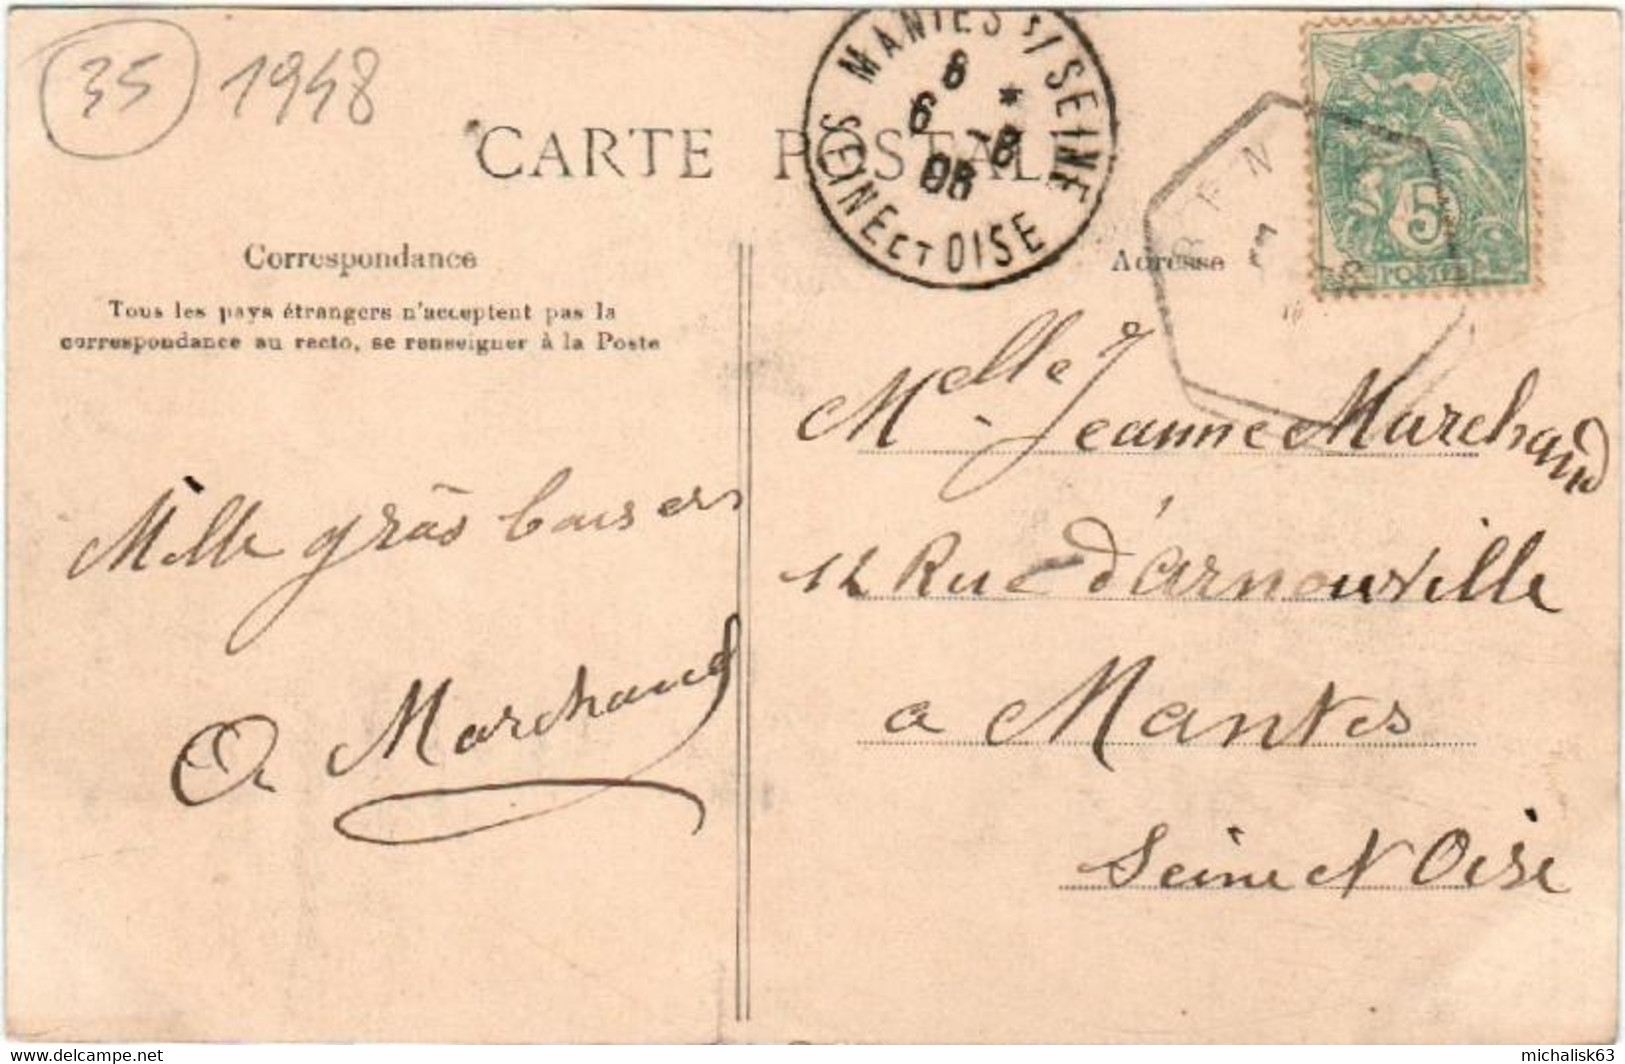 35 1948
CARTE POSTALE
MANTES s/ SEINE
6 *
6 -8
06
SEINE ET OISE
REN
5
POSTES
Correspondance
Tous les pays étrangers n'acceptent pas la
correspondance au recto, se renseigner à la Poste
Adresse
Mille gros baisers
A Marchand
Melle Jeanne Marchand
12 Rue d'Arnouville
a Mantes
Seine & Oise
michalisk63